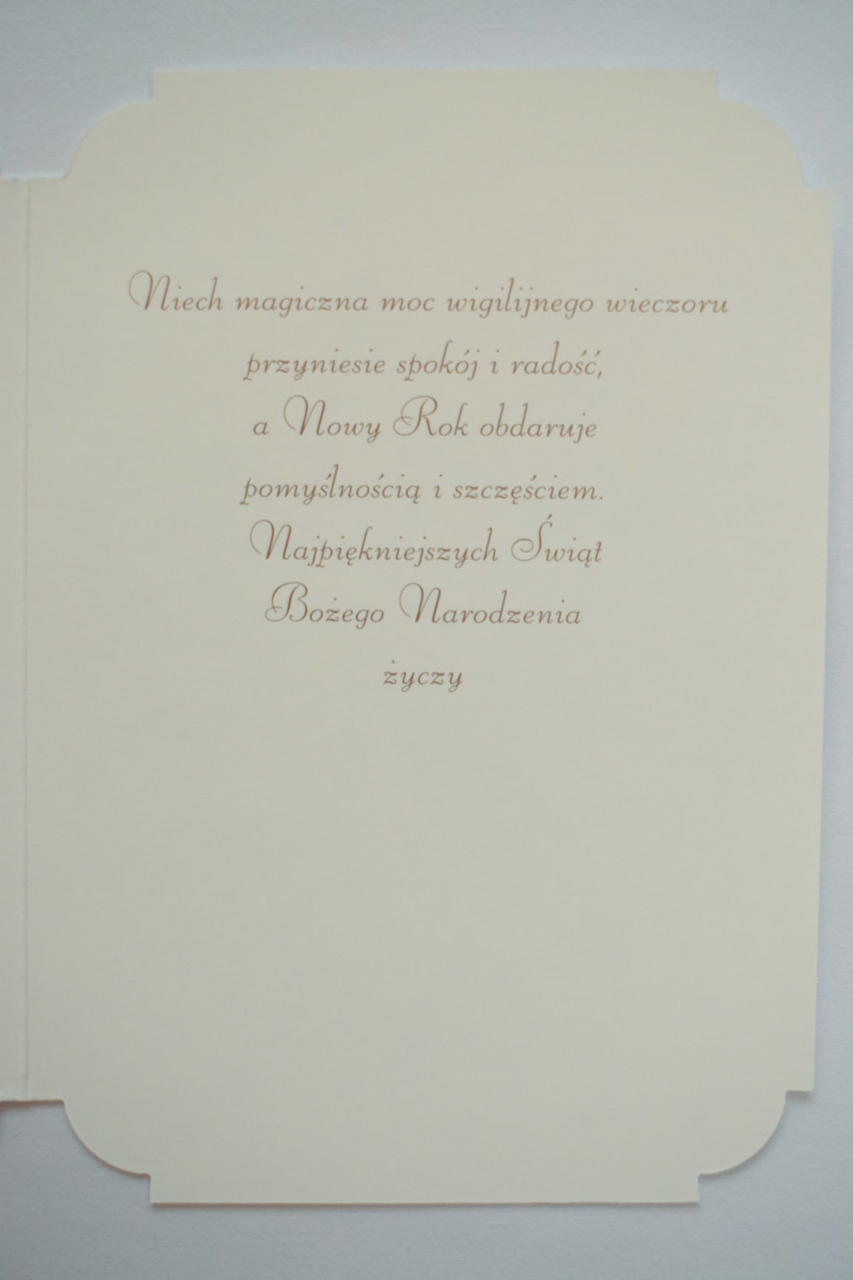 Niech magiczna moc wigilijnego wieczoru
przyniesie spokój i radość,
a Nowy Rok obdaruje
pomyślnością i szczęściem.
Najpiękniejszych Świąt
Bożego Narodzenia
życzy